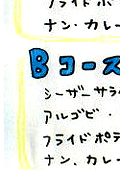 フライド ポ
ナン・カレー
Bコース
シーザーサラ
アルゴビ・
フライドポテ
ナン、カレー